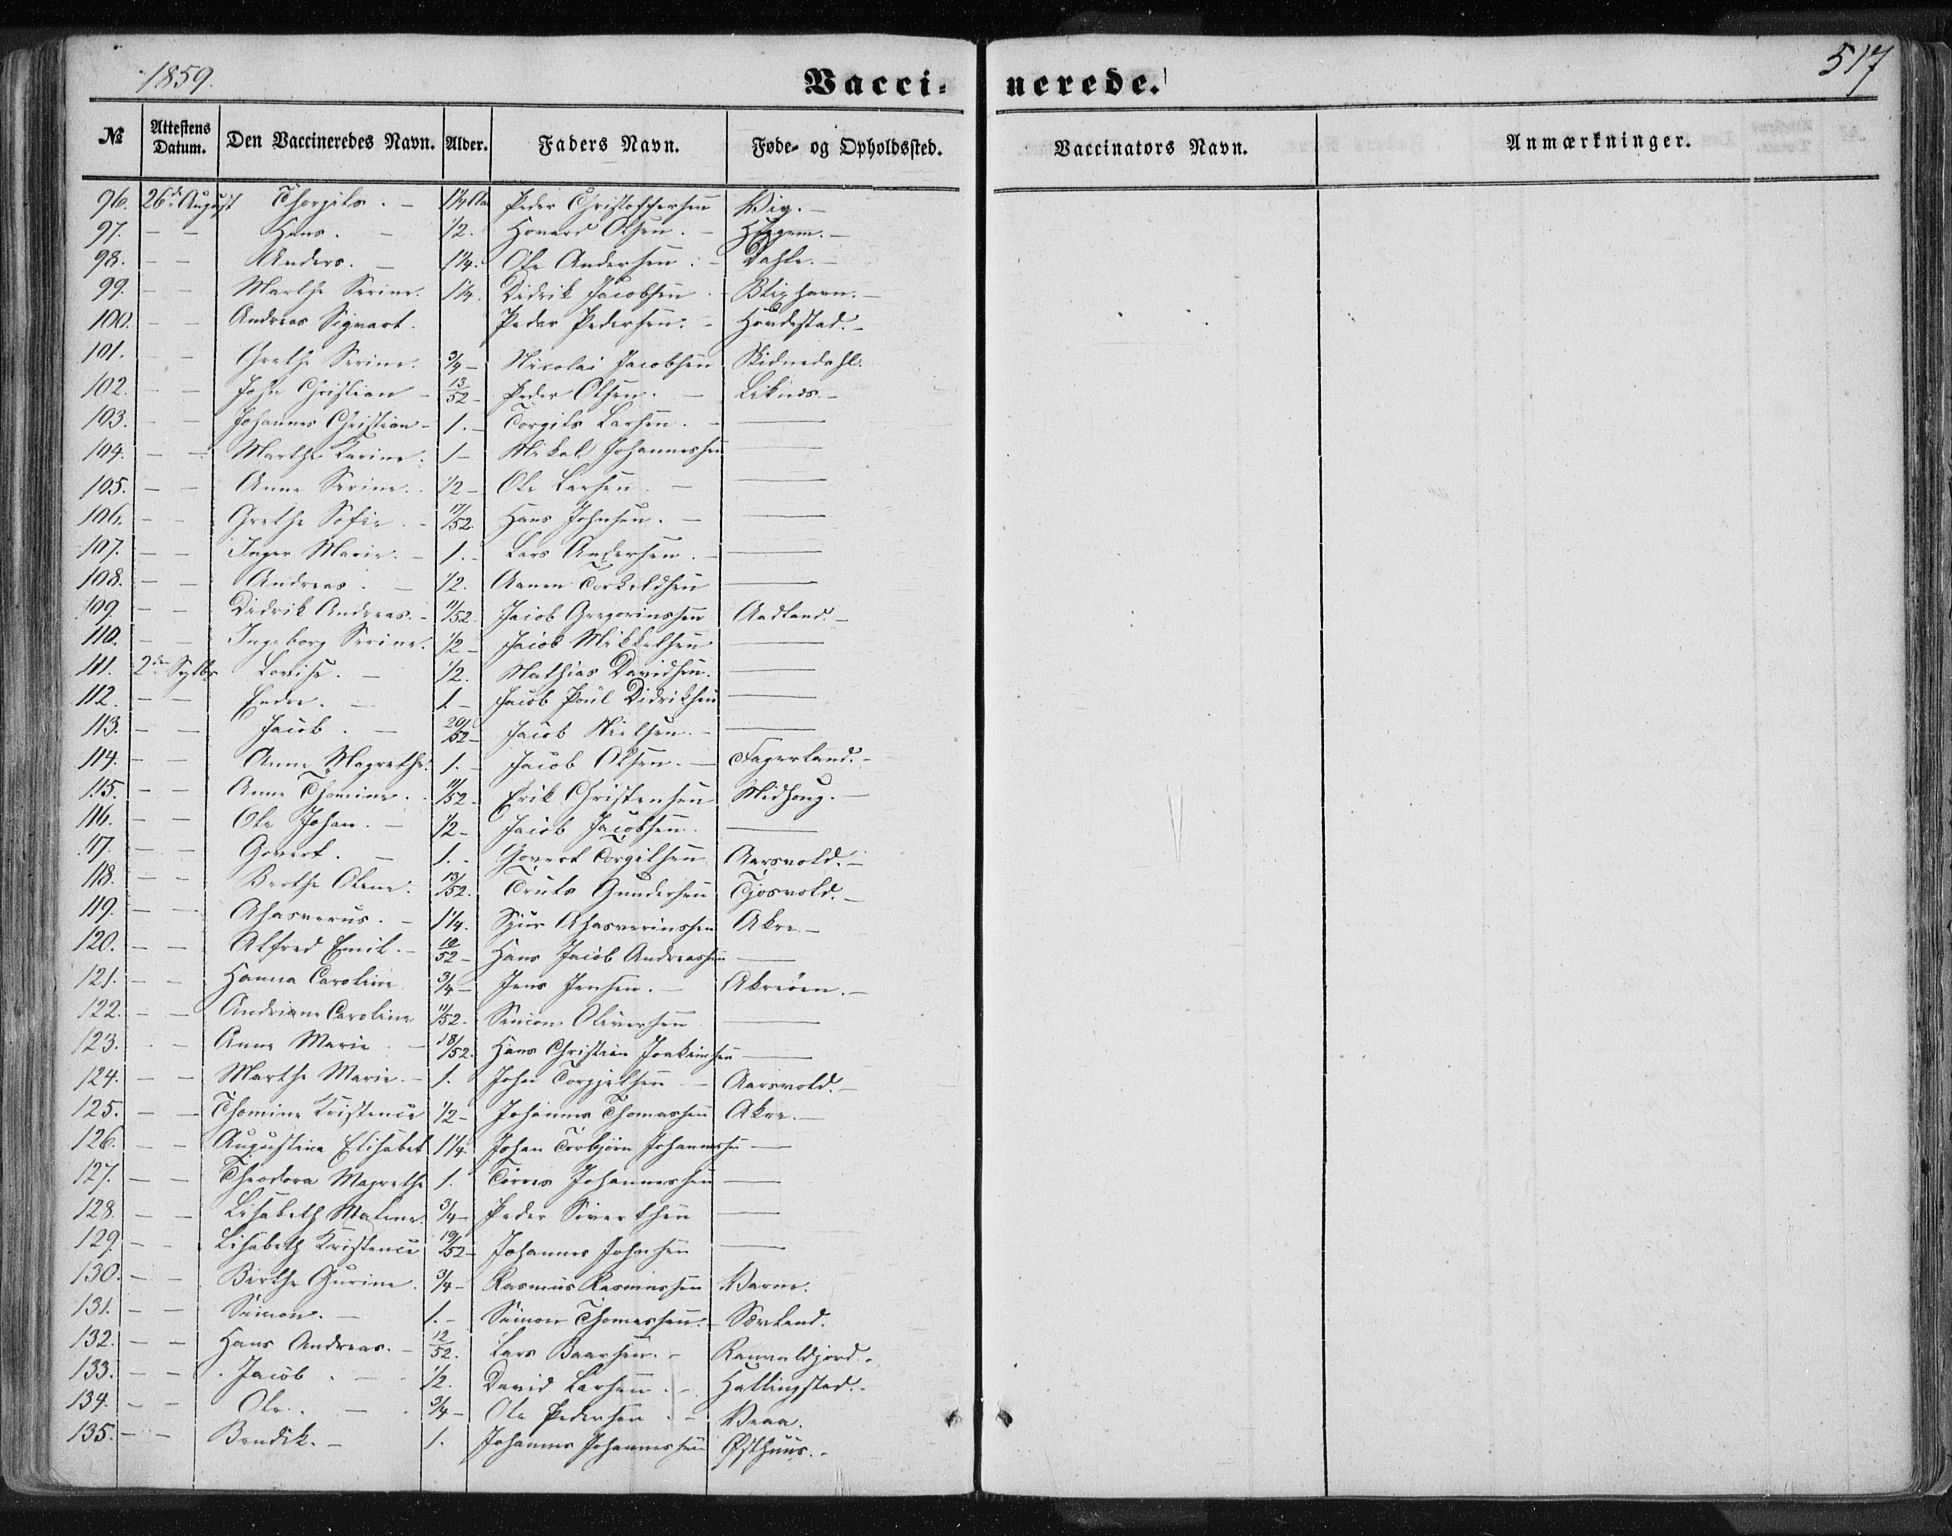 1859.
517
Vacci-nerede.
№ Attestens Datum. Den Vaccineredes Navn. Alder. Faders Navn. Føde- og Opholdssted. Vaccinators Navn. Anmærkninger.
96. 26de August Thorgils. - 1 1/4 Aar Peder Christoffersen Vig. -
97. - - Hans. - 1/2. Hovard Olsen. - -
98. - - Anders. - 1 1/4. Ole Andersen. - Dahle. -
99. - - Marthe Serine. 1 1/4. Didrik Jacobsen - Blixhavn. -
100. - - Andreas Sigvart. Peder Pedersen. - Hovdestad. -
101. - - Grethe Serine. 3/4 - Nicolai Jacobsen Skidnedahl.
102. - - John Christian - 13/52 - Peder Olsen. - Liknes. -
103. - - Johannes Christian - 1. - Torgils Larsen. - —
104. - - Marthe Karine. 1 - Mikal Johannessen —
105. - - Anne Serine. 1/2 - Ole Larsen. - —
106. - - Grethe Sofie. - 17/52. Hans Johnsen. - —
107. - - Inger Marie. - 1. - Lars Andersen. - —
108. - - Andreas. - 1/2. Aanen Torkildsen —
109. - - Didrik Andreas. - 11/52. Jacob Gregoriussen Aadland. -
110. - - Ingeborg Serine. 1/2 - Jacob Mikkelsen —
111. 2den Septbr Lovise. - 1/2. Mathias Davidsen. —
112. - - Endre. - 1. - Jacob Poul Didriksen —
113. - - Jacob. - 20/52 - Jacob Nielsen. - —
114. - - Anne Magrethe. 1. - Jacob Olsen. - Fagerland. -
115. - - Anne Thomine. - 11/52 - Erik Christensen Midhoug. -
116. - - Ole Johan. - 1/2 - Jacob Jacobsen. —
117. - - Govert. - 1. - Govert Torgilsen Aarsvold. -
118. - - Berthe Olene. 13/52. Truls Gundersen Tjosvold. -
119. - - Ahasverus. - 1 1/4. Sjur Ahasveriussen Akre. -
120. - - Alfred Emil. - 12/52 - Hans Jacob Andreassen —
121. - - Hanna Caroline 3/4 - Jens Jensen. - Akreøen. -
122. - - Andriane Caroline 11/52. Simon Oliversen —
123. - - Anne Marie. - 18/52. Hans Christian Joakimsen —
124. - - Marthe Marie. - 1. John Torgjelsen - Aarsvold. -
125. - - Thomine Kristence 1/2 - Johannes Thomassen Akre. -
126. - - Augustine Elisabet 1 1/4 Johan Torbjørn Johannessen —
127. - - Theodora Magrethe 1. Tørres Johannessen —
128. - - Lisabeth Malene. 3/4 - Peder Sivertsen —
129. - - Lisabeth Kristence 19/52 - Johannes Johnsen —
130. - - Birthe Gurine. 3/4 - Rasmus Rasmussen Varne.
131. - - Simon. - 1. - Simon Thomassen. - Sørland.
132. - - Hans Andreas. - 12/52. Lars Baarsen. - -
133. - - Jacob. - 1/2. David Larsen. - Hallingstad. -
134. - - Ole. - 3/4 - Ole Pedersen. - Veaa.
135. - - Bendik. - 1. Johannes Johannessen Østhuus. -